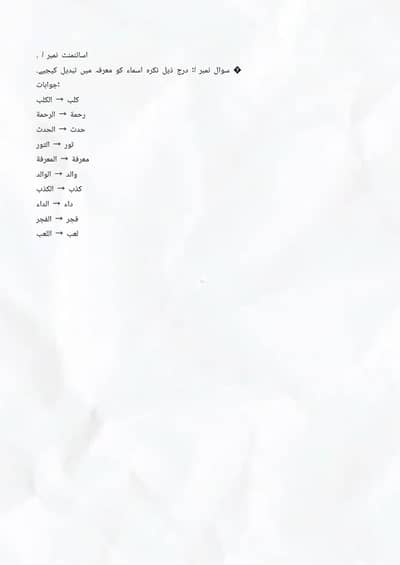 اسائنمنٹ نمبر ا .
� سوال نمبر ا: درج ذیل نکرہ اسماء کو معرفہ میں تبدیل کیجیے.
جوابات:
کلب → الکلب
رحمة → الرحمة
حدث → الحدث
ثور → الثور
معرفة → المعرفة
والد → الوالد
کذب → الکذب
داء → الداء
فجر → الفجر
لعب → اللعب